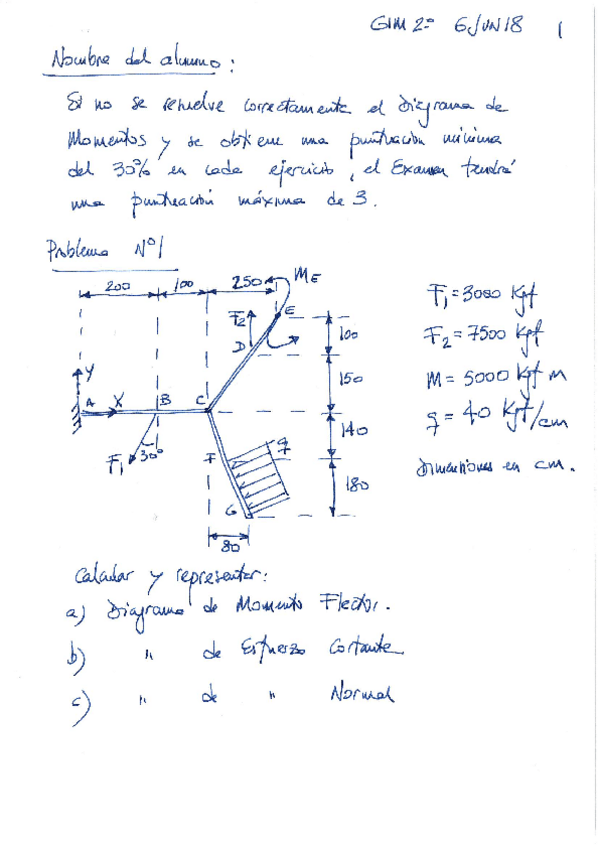 GIM 2º 6/JUN 18 1
Nombre del alumno:
Si no se resuelve correctamente el Diagrama de
Momentos y se obtiene una puntuación mínima
del 30% en cada ejercicio, el Examen tendrá
una puntuación máxima de 3.
Problema Nº1
200 100 250 ME
F2 E
D 100
Y 150
A X B C
140
F1 30º F q
180
G
80
F1 = 3000 Kgf
F2 = 7500 Kgf
M = 5000 Kgf m
q = 40 Kgf/cm
Dimensiones en cm.
Calcular y representar:
a) Diagrama de Momento Flector.
b) " de Esfuerzo Cortante
c) " de " Normal